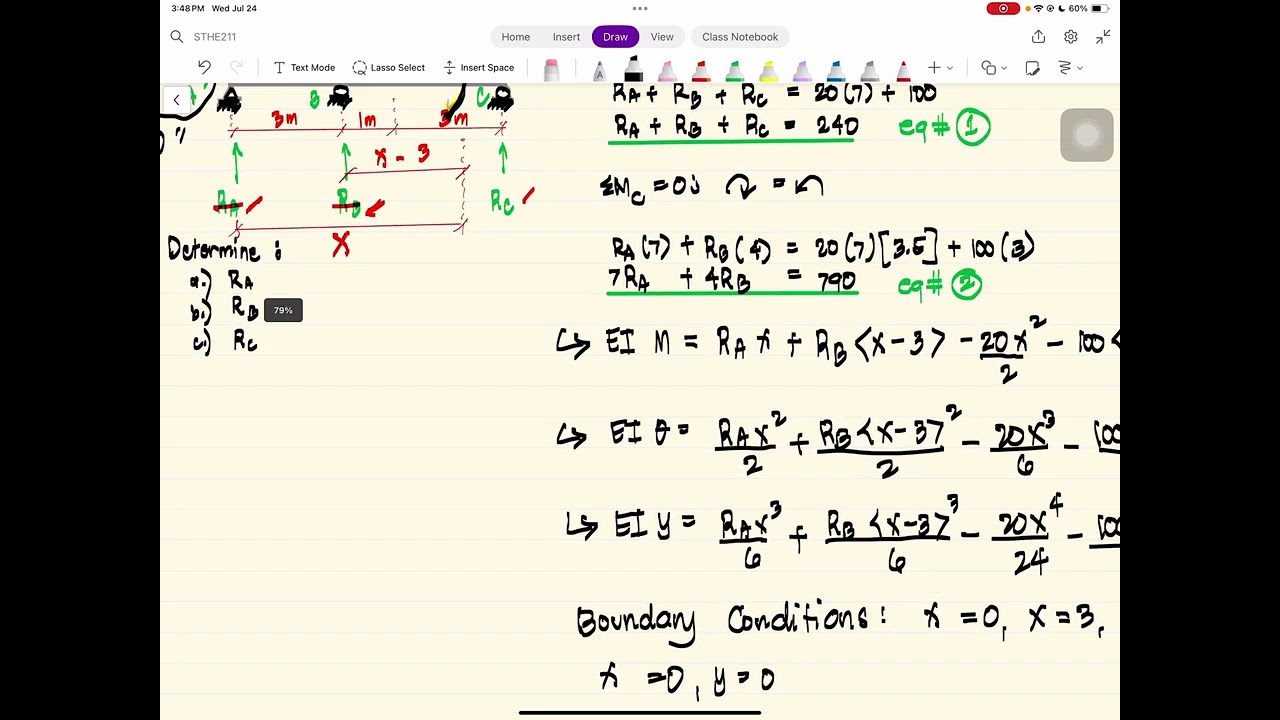 3:48 PM Wed Jul 24
60%
STHE211
Home Insert Draw View Class Notebook
Text Mode Lasso Select Insert Space
B C
3m 1m 3m
x - 3
RA RB RC
x
Determine :
a.) RA
b.) RB
c.) RC
79%
RA + RB + RC = 20(7) + 100
RA + RB + RC = 240 eq# ①
ΣMC = 0; ↷ = ↶
RA(7) + RB(4) = 20(7)[3.5] + 100(3)
7RA + 4RB = 790 eq# ②
↳ EI M = RA x + RB <x-3> - 20x²/2 - 100<
↳ EI θ = RAx²/2 + RB<x-3>²/2 - 20x³/6 - 100
↳ EI y = RAx³/6 + RB<x-3>³/6 - 20x⁴/24 - 100
Boundary Conditions : x = 0, x = 3,
x = 0, y = 0